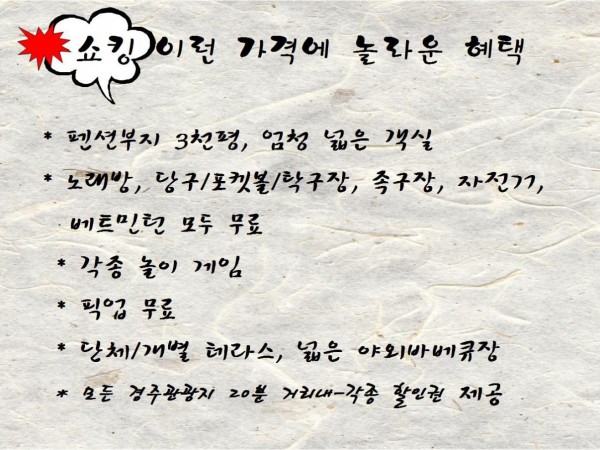 쇼킹 이런 가격에 놀라운 혜택
* 펜션부지 3천평, 엄청 넓은 객실
* 노래방, 당구/포켓볼/탁구장, 족구장, 자전거,
베트민턴 모두 무료
* 각종 놀이 게임
* 픽업 무료
* 단체/개별 테라스, 넓은 야외바베큐장
* 모든 경주관광지 20분 거리내-각종 할인권 제공